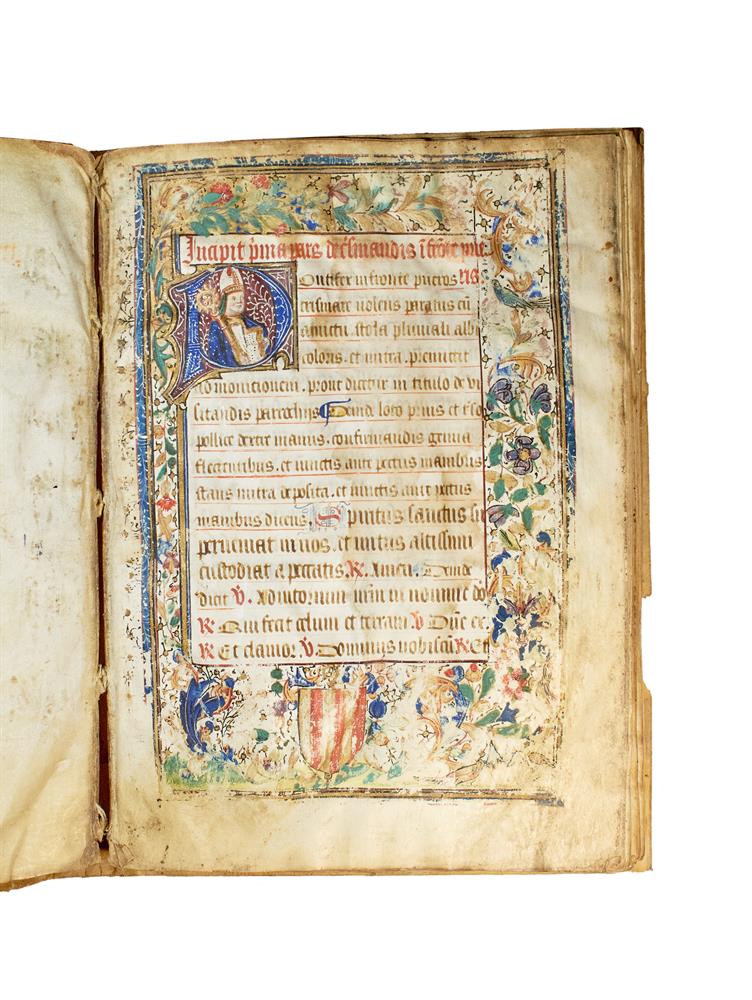 Incipit p̄ma pars de c̄smandis ī frōte pue
Pontifex in fronte pueros ris.
crismare uolens paratus cū
amictu stola pluuiali albi
coloris. et mitra. premittit
admonicionem. prout dicitur in titulo de vi
sitandis parrochijs Deinde loto prius et t̄so
pollice dextre manus. confirmandis genua
flectentibus. et iunctis ante pectus manibus.
stans mitra deposita. et iunctis ante pectus
manibus dicens. Spiritus sanctus su
perueniat in uos. et uirtus altissimi
custodiat a peccatis. R. Amen. Deinde
dicit V. Adiutorium nr̄m in nomine do
R Qui fecit celum et terram V Dn̄e ex
R Et clamor. V. Dominus uobiscū R Et